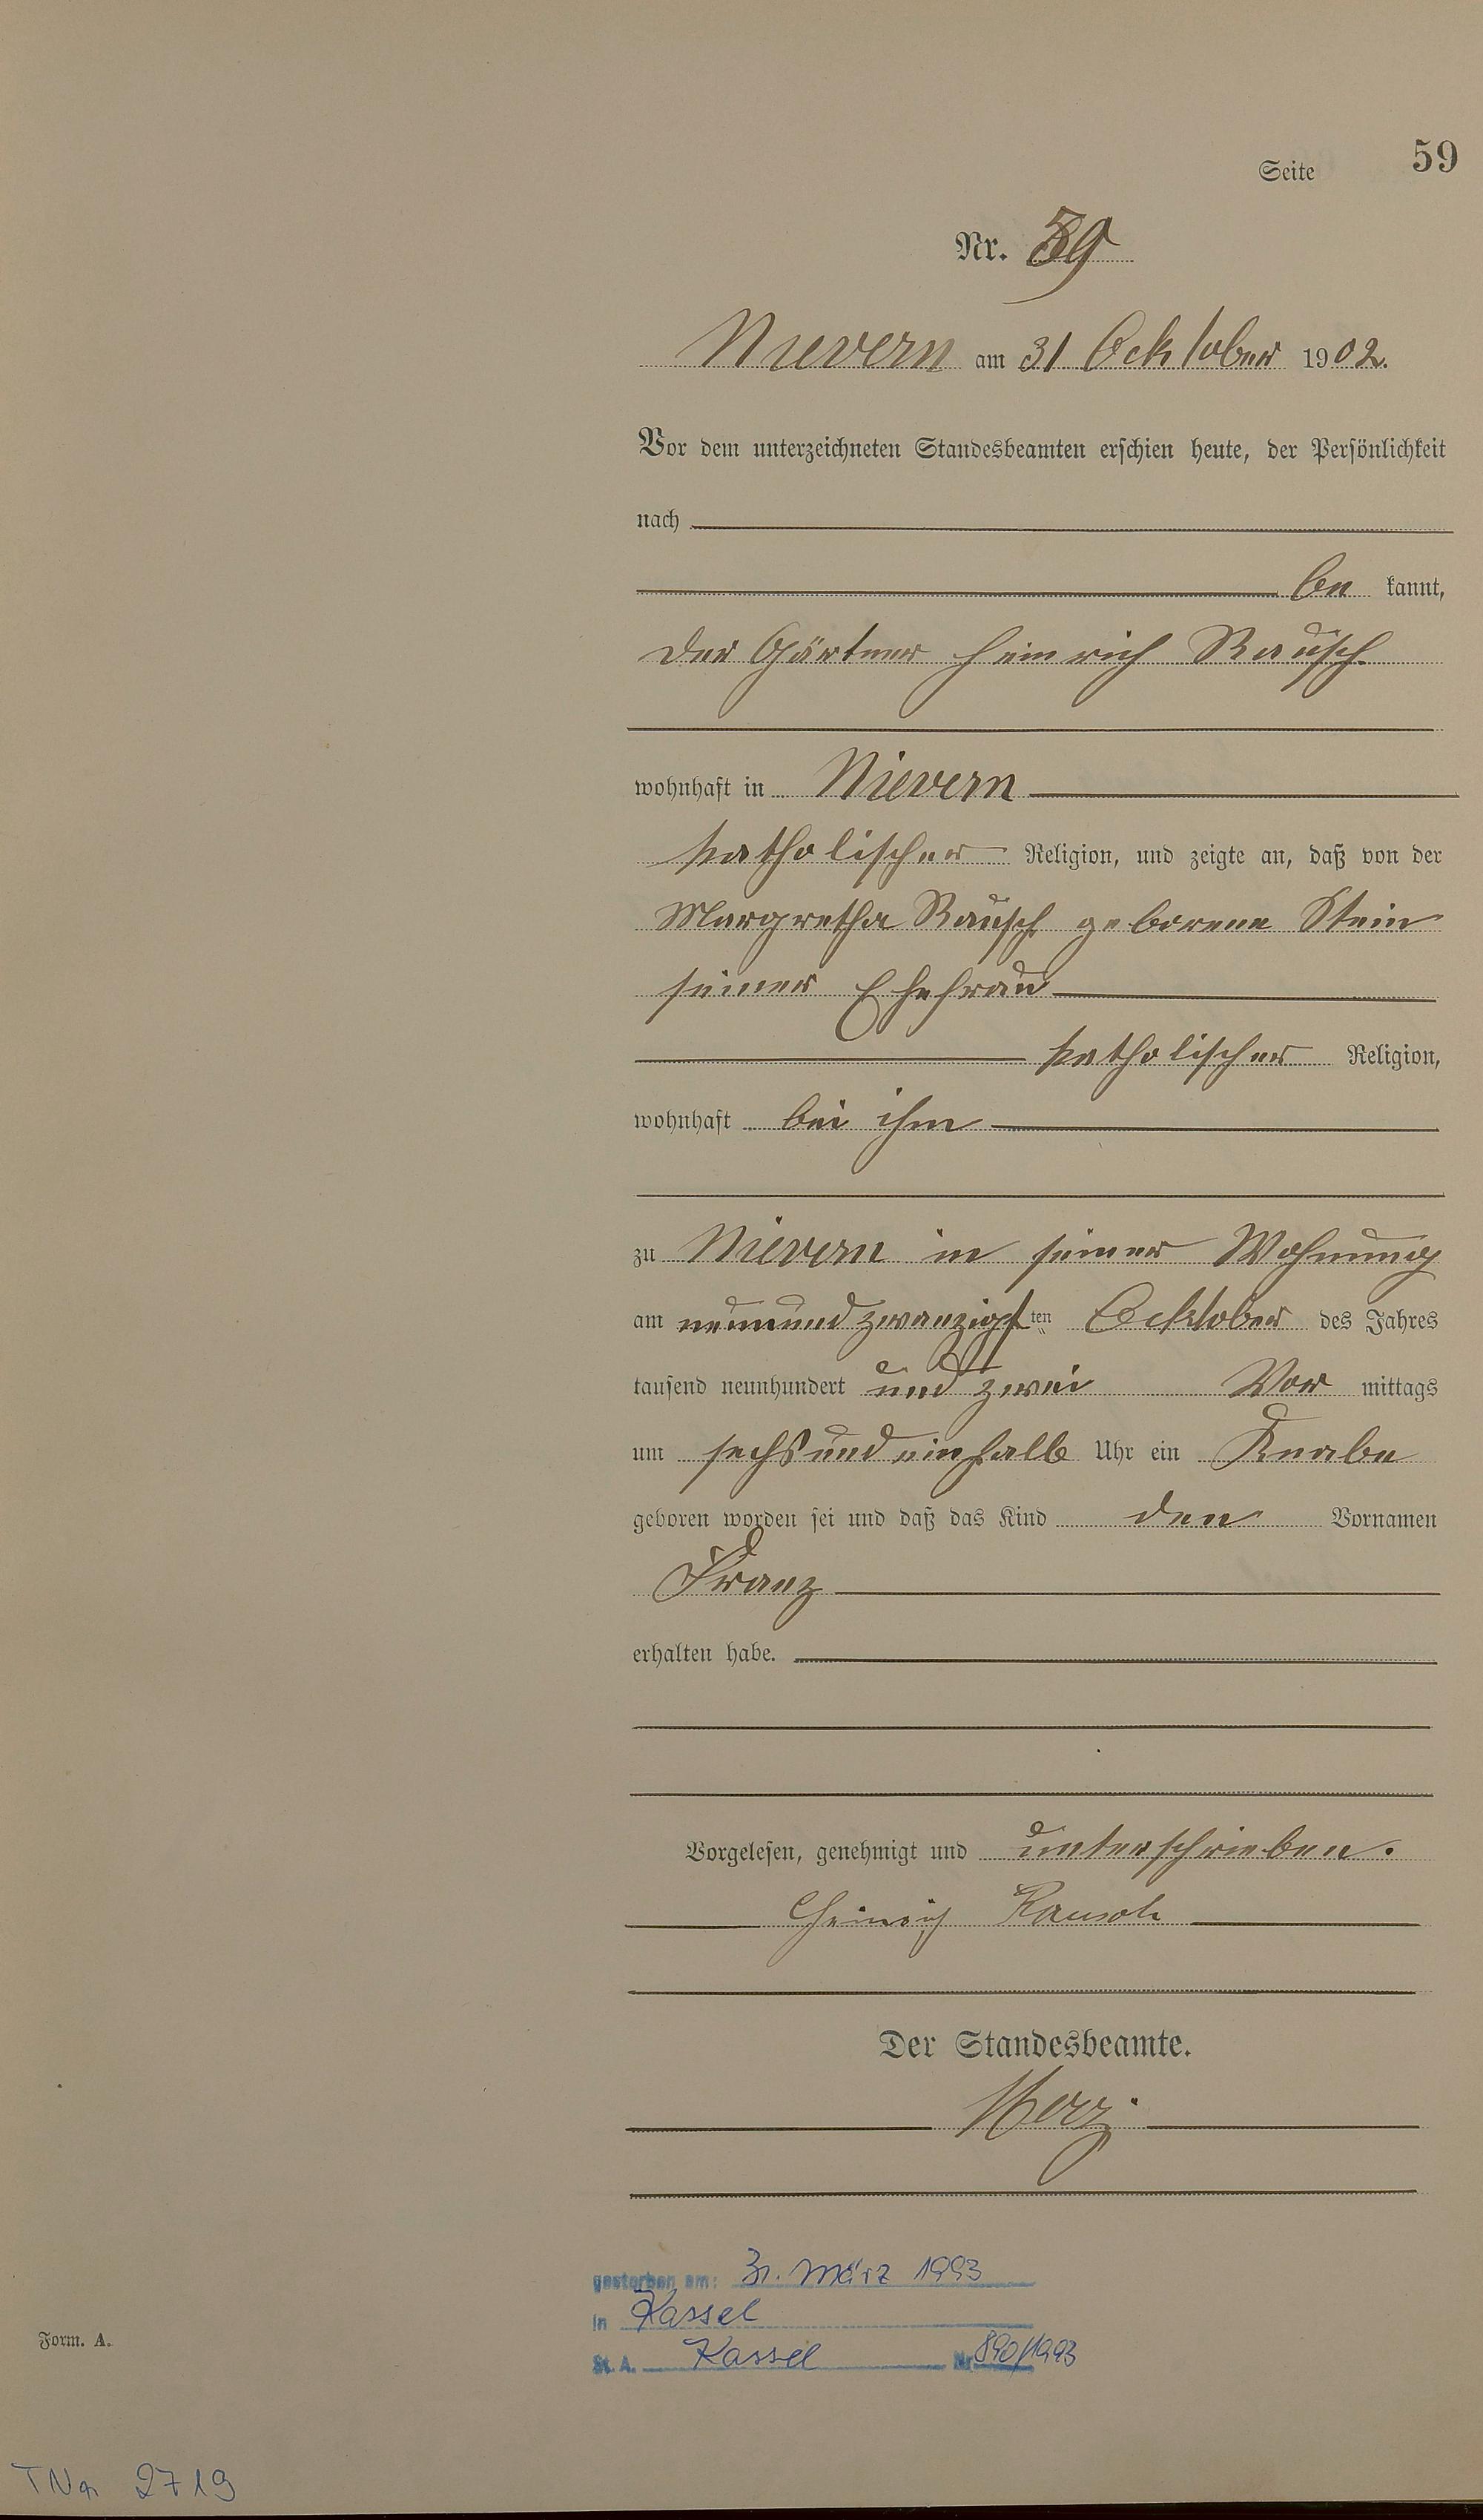 Seite 59
Nr. 59
Nievern am 31 Ocktober 1902.
Vor dem unterzeichneten Standesbeamten erschien heute, der Persönlichkeit
nach
be kannt,
der Gärtner Heinrich Rausch
wohnhaft in Nievern
katholischer Religion, und zeigte an, daß von der
Margretha Rausch geborene Stein
seiner Ehefrau
katholischer Religion,
wohnhaft bei ihm
zu Nievern in seiner Wohnung
am neunundzwanzigsten Ocktober des Jahres
tausend neunhundert und zwei Vor mittags
um sechs und einhalb Uhr ein Knabe
geboren worden sei und daß das Kind den Vornamen
Franz
erhalten habe.
Vorgelesen, genehmigt und unterschrieben.
Heinrich Rausch
Der Standesbeamte.
gestorben am: 31. März 1993
in Kassel
Form. A.
St. A. Kassel Nr. 890/1993
TNr 2719